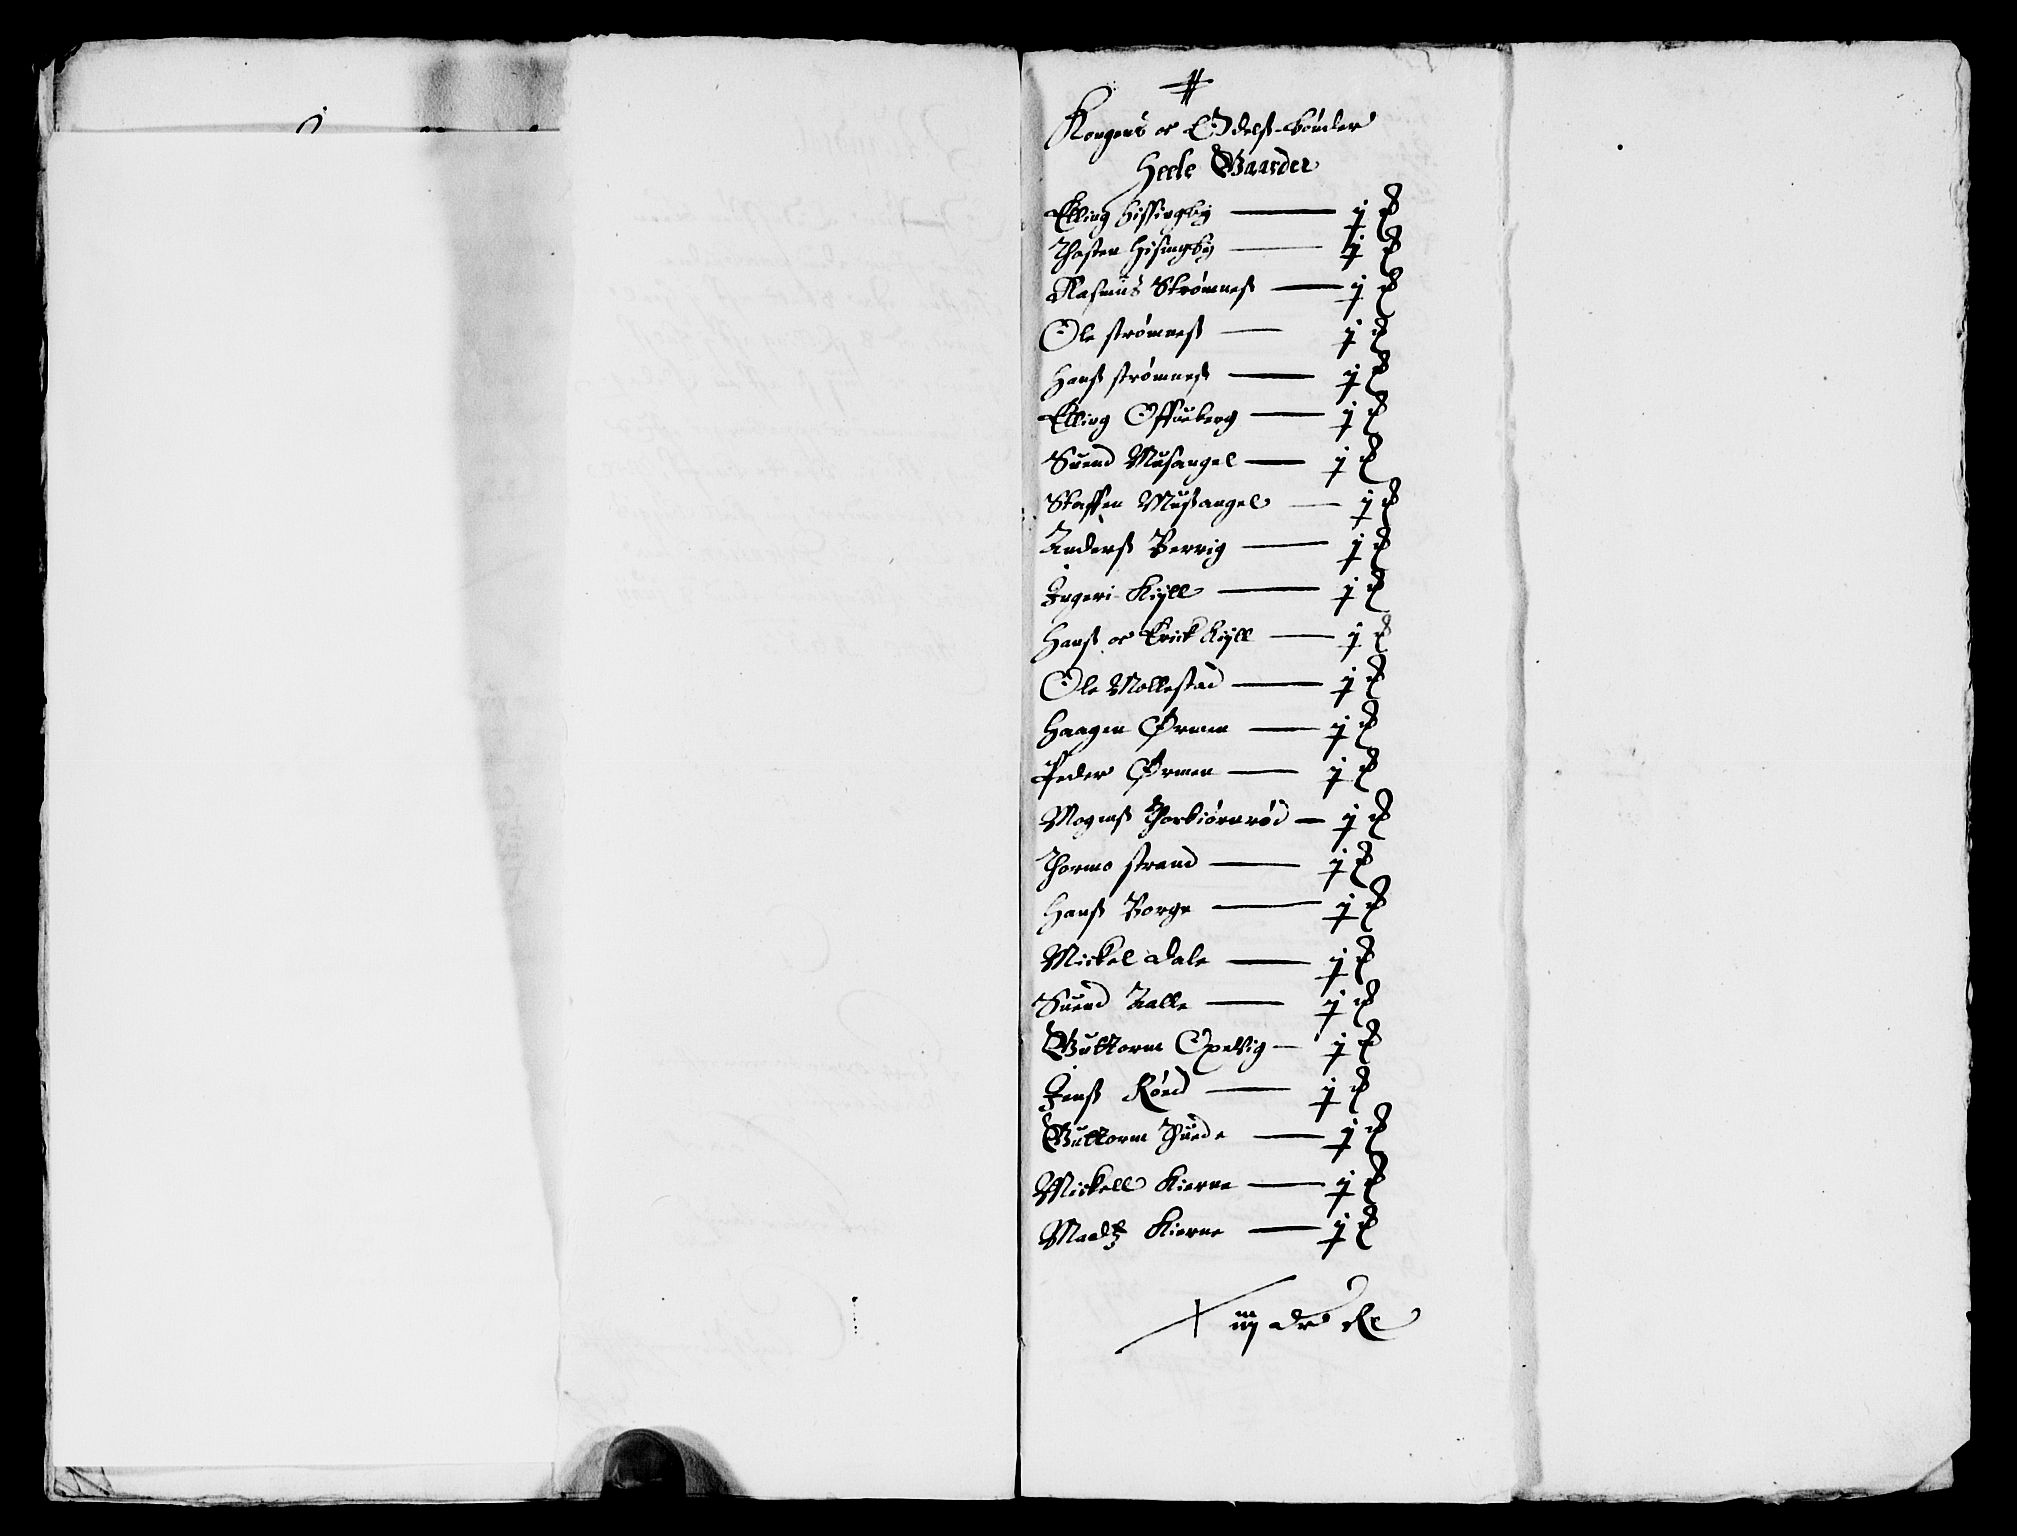 Kongens oc Odelss-bønder
Heele Gaarder
Elling hissingby — j d
Thosten Hisingby — j d
Rasmus Strømness — j d
Ole strømness — j d
Hanss strømness — j d
Elling Offueberg — j d
Suend Musangel — j d
Staffen Mussangel — j d
Anderss Berrig — j d
Ingeri Kiyll — j d
Hanss oc Erick Kiyll — j d
Ole Mollestad — j d
Haagen Ørmen — j d
Peder Ørmen — j d
Mogenss Thorbiørnrød — j d
Thormo strand — j d
Hanss Borge — j d
Mickel Dale — j d
Suend Aalle — j d
Guttorm Opettig — j d
Jenss Røed — j d
Guttorm Thuede — j d
Mickell Kierne — j d
Madtz Kierne — j d